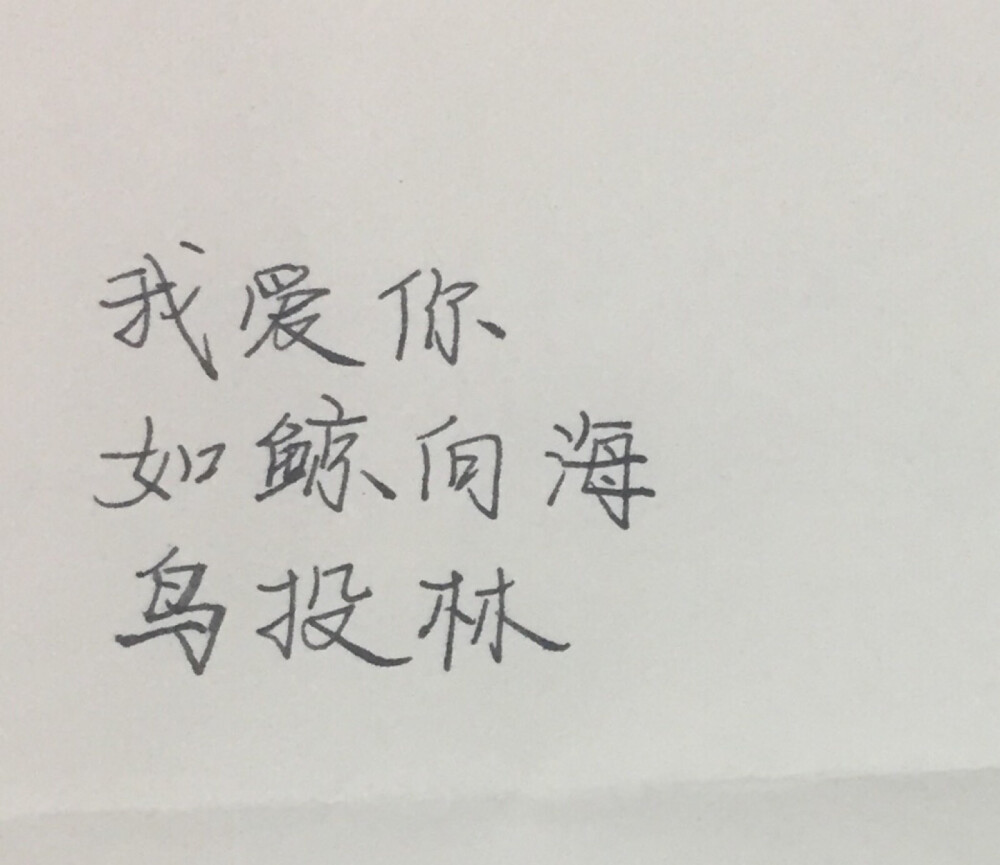 我爱你
如鲸向海
鸟投林